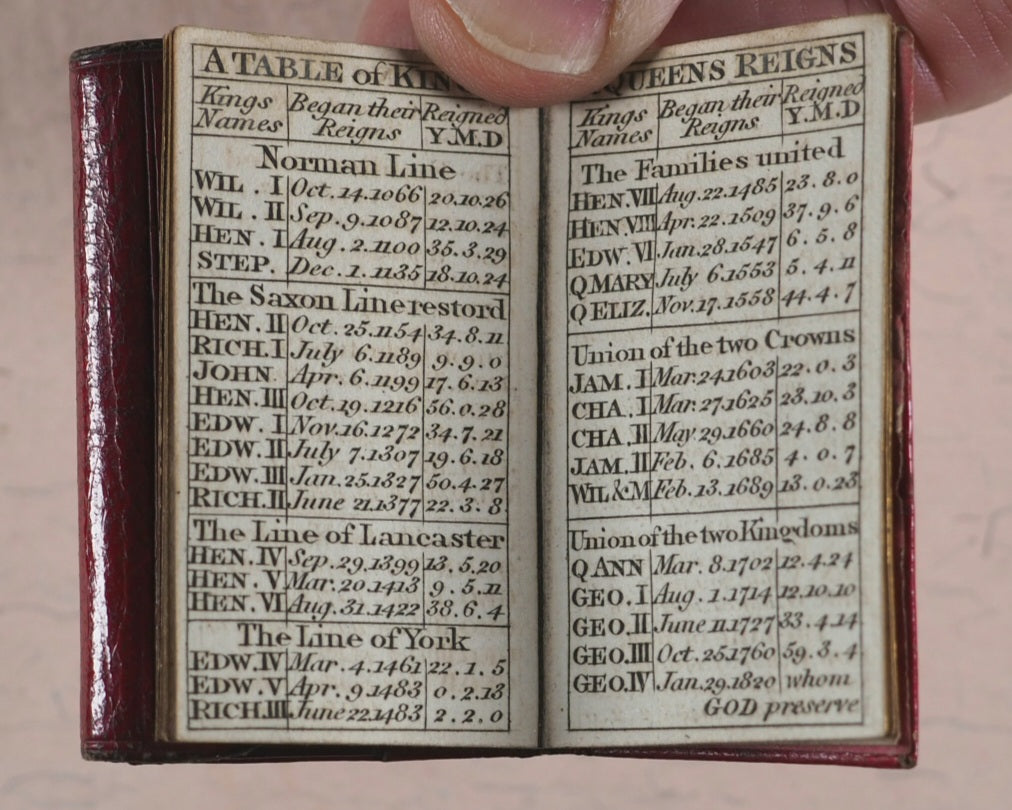 A TABLE of KIN
Kings Names Began their Reigns Reigned Y.M.D
Norman Line
WIL . I Oct. 14.1066 20.10.26
WIL . II Sep. 9.1087 12.10.24
HEN . I Aug. 2.1100 35.3.29
STEP. Dec. 1.1135 18.10.24
The Saxon Line restord
HEN. II Oct. 25.1154 34.8.11
RICH. I July 6.1189 9.9.0
JOHN Apr. 6.1199 17.6.13
HEN. III Oct. 19.1216 56.0.28
EDW. I Nov. 16.1272 34.7.21
EDW. II July 7.1307 19.6.18
EDW. III Jan. 25.1327 50.4.27
RICH. II June 21.1377 22.3.8
The Line of Lancaster
HEN. IV Sep. 29.1399 13.5.20
HEN. V Mar. 20.1413 9.5.11
HEN. VI Aug. 31.1422 38.6.4
The Line of York
EDW. IV Mar. 4.1461 22.1.5
EDW. V Apr. 9.1483 0.2.13
RICH. III June 22.1483 2.2.0
QUEENS REIGNS
Kings Names Began their Reigns Reigned Y.M.D
The Families united
HEN. VII Aug. 22.1485 23.8.0
HEN. VIII Apr. 22.1509 37.9.6
EDW. VI Jan. 28.1547 6.5.8
Q MARY July 6.1553 5.4.11
Q ELIZ. Nov. 17.1558 44.4.7
Union of the two Crowns
JAM. I Mar. 24.1603 22.0.3
CHA. I Mar. 27.1625 23.10.3
CHA. II May 29.1660 24.8.8
JAM. II Feb. 6.1685 4.0.7
WIL & M Feb. 13.1689 13.0.23
Union of the two Kingdoms
Q ANN Mar. 8.1702 12.4.24
GEO. I Aug. 1.1714 12.10.10
GEO. II June 11.1727 33.4.14
GEO. III Oct. 25.1760 59.3.4
GEO. IV Jan. 29.1820 whom
GOD preserve